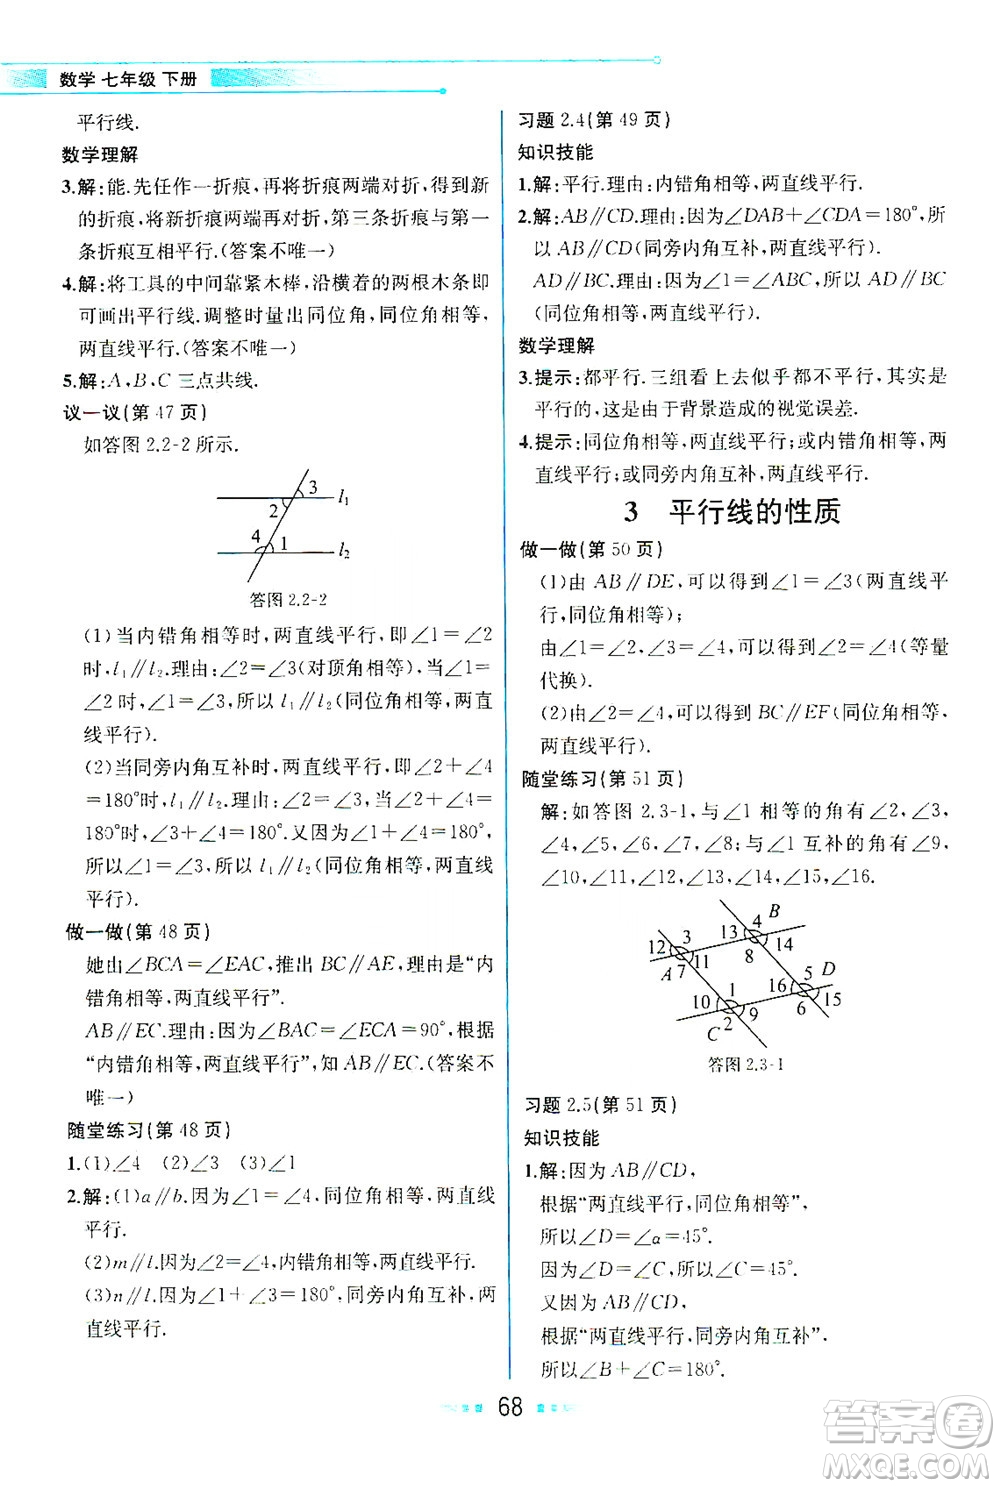 数学 七年级 下册
平行线.
数学理解
3.解:能.先任作一折痕,再将折痕两端对折,得到新
的折痕,将新折痕两端再对折,第三条折痕与第一
条折痕互相平行.(答案不唯一)
4.解:将工具的中间靠紧木棒,沿横着的两根木条即
可画出平行线.调整时量出同位角,同位角相等,
两直线平行.(答案不唯一)
5.解:A,B,C 三点共线.
议一议(第 47 页)
如答图 2.2-2 所示.
3
l₁
2
4
1
l₂
答图 2.2-2
(1)当内错角相等时,两直线平行,即∠1=∠2
时,l₁∥l₂.理由:∠2=∠3(对顶角相等),当∠1
=∠2时,∠1=∠3,所以 l₁∥l₂(同位角相等,两直
线平行).
(2)当同旁内角互补时,两直线平行,即∠2+∠4
=180°时,l₁∥l₂.理由:因为∠2=∠3,∠2+∠4=
180°,所以∠3+∠4=180°.又因为∠1+∠4=180°,
所以∠1=∠3,所以 l₁∥l₂(同位角相等,两直线
平行).
做一做(第 48 页)
她由∠BCA=∠EAC,推出 BC∥AE,理由是“内
错角相等,两直线平行”.
AB∥EC.理由:因为∠BAC=∠ECA=90°,根据
“内错角相等,两直线平行”,知 AB∥EC.(答案不
唯一)
随堂练习(第 48 页)
1.(1)∠4 (2)∠3 (3)∠1
2.解:(1)a∥b.因为∠1=∠4,同位角相等,两直线
平行.
(2)m∥l.因为∠1=∠2,内错角相等,两直线平行.
(3)n∥l.因为∠1+∠3=180°,同旁内角互补,两
直线平行.
习题 2.4(第 49 页)
知识技能
1.解:平行.理由:内错角相等,两直线平行.
2.解:AB∥CD.理由:因为∠DAB+∠CDA=180°,所
以 AB∥CD(同旁内角互补,两直线平行).
AD∥BC.理由:因为∠1=∠ABC,所以 AD∥BC
(同位角相等,两直线平行).
数学理解
3.提示:都平行.三组看上去似乎都不平行,其实是
平行的,这是由于背景造成的视觉误差.
4.提示:同位角相等,两直线平行;或内错角相等,两
直线平行;或同旁内角互补,两直线平行.
3 平行线的性质
做一做(第 50 页)
(1)由 AB∥DE,可以得到∠1=∠3(两直线平
行,同位角相等);
由∠1=∠2,∠3=∠4,可以得到∠2=∠4(等量
代换).
(2)由∠2=∠4,可以得到 BC∥EF(同位角相等,
两直线平行).
随堂练习(第 51 页)
解:如答图 2.3-1,与∠1 相等的角有∠2,∠3,
∠4,∠5,∠6,∠7,∠8;与∠1 互补的角有∠9,
∠10,∠11,∠12,∠13,∠14,∠15,∠16.
4 B
13
3
12
14
8
11
A 7
5 D
16
1
10
15
6
9
C 2
答图 2.3-1
习题 2.5(第 51 页)
知识技能
1.解:因为 AB∥CD,
根据“两直线平行,同位角相等”,
所以∠D=∠α=45°.
因为∠D=∠C,所以∠C=45°.
又因为 AB∥CD,
根据“两直线平行,同旁内角互补”
所以∠B+∠C=180°.
68
答案圈
MXQE.COM